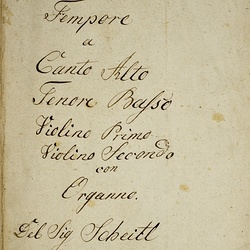 Tempore
a
Canto Alto
Tenore Basso
Violino Primo
Violino Secondo
con
Organno.
Del Sig Scheitl